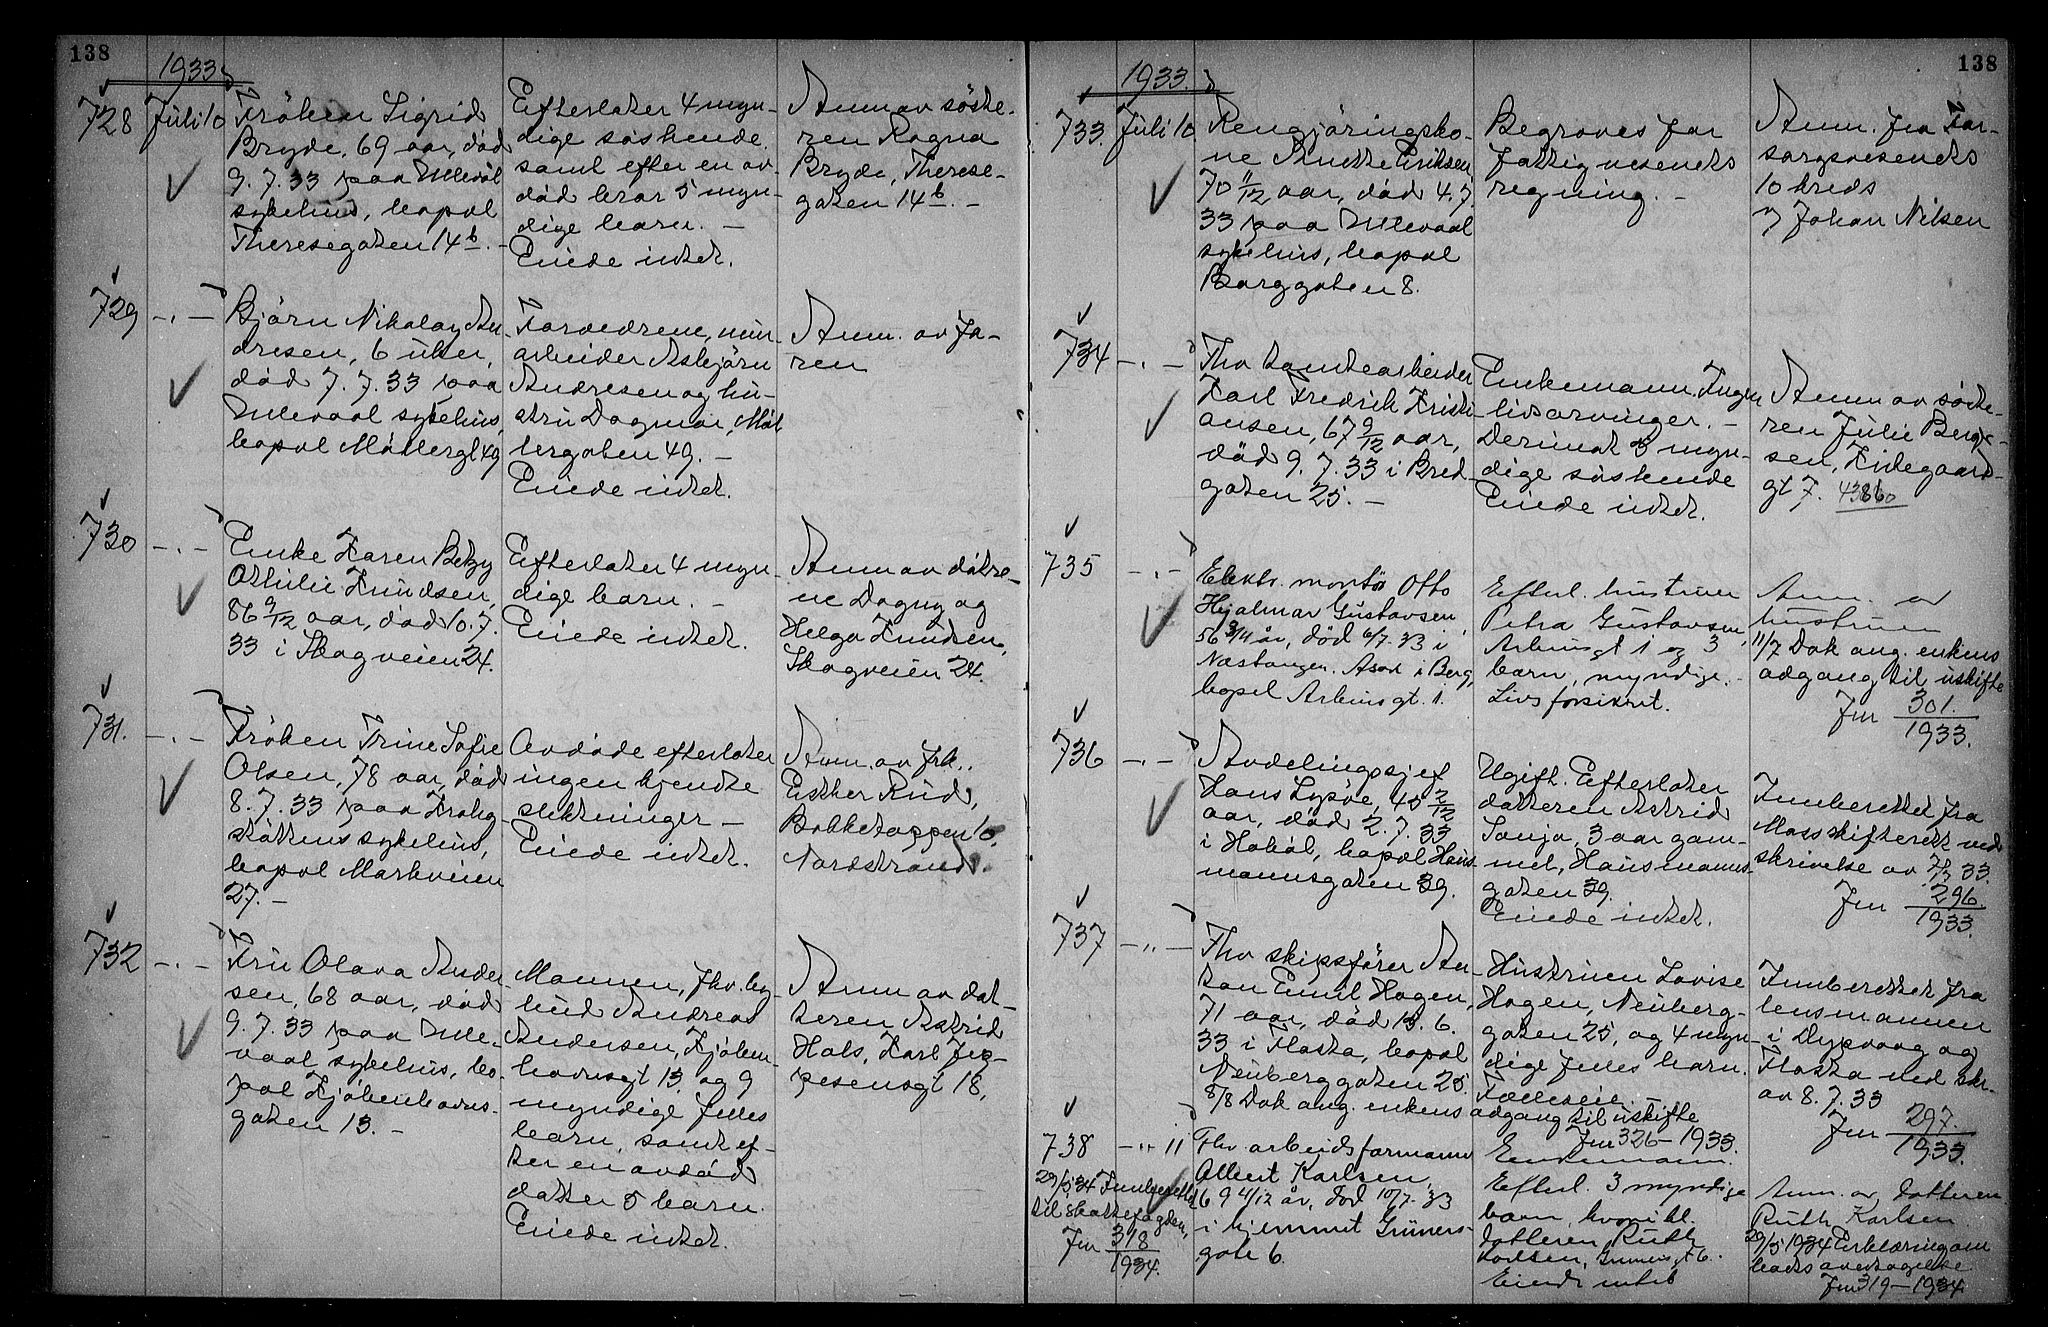 138
1933
728 Juli 10
Fröken Sigrid
Bryde, 69 aar, död
9.7.33 paa Ullevål
sykehus, bopæl
Theresegaten 14 b. -
Efterlater 4 myn-
dige söskende
samt efter en av-
död bror 5 myn-
dige barn. -
Eiede intet.
Anm av söste-
ren Ragna
Bryde, Therese-
gaten 14 b. -
729 -.-
Björn Nikolay An
dresen, 6 uker,
död 7.7.33 paa
Ullevaal sykehus,
bopæl Möllergt 49
Forældrene, mur
arbeider Asbjörn
Andresen og hu-
stru Dagmar, Möl
lergaten 49. -
Eiede intet.
Anm. av fa-
ren
730 -.-
Enke Karen Betzy
Othilie Knudsen,
86 9/12 aar, död 10.7.
33 i Skogveien 24.
Efterlater 4 myn-
dige barn. -
Eiede intet.
Anm av dötre-
ne Dagny og
Helga Knudsen,
Skogveien 24.
731. -.-
Fröken Trine Sofie
Olsen, 78 aar, död
8.7.33 paa Krohg
stöttens sykehus,
bopæl Markveien
27. -
Avdöde efterlater
ingen kjendte
slektninger -
Eiede intet.
Anm. av frk.
Esther Rud,
Bakketoppen 10,
Nordstrand.
732 -.-
Fru Olava Ander
sen, 68 aar, död
9.7.33 paa Ulle-
vaal sykehus, bo-
pæl Kjöbenhavns-
gaten 13. -
Mannen, fhv. by-
bud Andreas
Andersen, Kjöben
havnsgt 13, og 9
myndige felles
barn, samt ef-
ter en avdöd
datter 5 barn.
Eiede intet.
Anm av dat-
teren Astrid
Hals, Karl Jep-
pesensgt 18,
138
1933.
733. Juli 10
Rengjöringsko-
ne Anette Eriksen,
70 11/12 aar, död 4.7.
33 paa Ullevaal
sykehus, bopæl
Borggaten 8.
Begraves for
fattigvesenets
regning. -
Anm. fra For-
sorgsvesenets
10 kreds
v/ Johan Nilsen
734 -.-
Fhv tomtearbeider
Karl Fredrik Kristi-
ansen, 67 9/12 aar,
död 9.7.33 i Bred-
gaten 25. -
Enkemann. Ingen
livsarvinger. -
Derimot 3 myn-
dige söskende
Eiede intet.
Anm av söste-
ren Julie Berg-
sen, Kildegaards-
gt 7. 43860
735 -.-
Elektr. montör Otto
Hjalmar Gustavsen,
56 3/11 år, död 6/7. 33 i
Næstangen. Asak i Berg,
bopel Arbinsgt. 1.
Efterl. hustruen
Petra Gustavsen,
Arbinsgt 1 og 3
barn, myndige. -
Livsforsikret.
Anm. av
hustruen
11/7 Dok ang. enkens
adgang til uskifte
Jnr 301.
1933.
736 -.-
Avdelingssjef
Hans Lysöe, 45 2/12
aar, död 2.7.33
i Hobøl, bopæl Haus
mannsgaten 39.
Ugift. Efterlater
datteren Astrid
Sonja, 3 aar gam-
mel, Hausmanns-
gaten 39.
Eiede intet.
Innberettet fra
Moss skifterett ved
skrivelse av 7/7 33.
Jnr 296.
1933.
737 -..-
Fhv skipsförer An-
ton Emil Hagen,
71 aar, död 13.6.
33 i Flosta, bopæl
Neuberggaten 25.
8/8 Dok ang. enkens adgang til uskifte
Jnr 326-1933.
Hustruen Lovise
Hagen, Neuberg-
gaten 25, og 4 myn-
dige felles barn.
Felleseie. -
Innberettet fra
lensmannen
i Dypvaag og
Flosta ved skr.
av 8.7.33
Jnr 297.
1933.
738 -..- 11
29/5 34 Innberettet
til skattefogden,
Jnr 318
1934.
Fhv. arbeidsformann
Albert Karlsen,
69 4/12 år, död 10/7. 33
i hjemmet Grüners-
gate 6.
Enkemann.
Efterl. 3 myndige
barn, hvoriblt.
datteren Ruth
Karlsen, Grünersgt 6.
Eiende intet
Anm. av datteren
Ruth Karlsen
29/5 1934 Erklæring om
boets overtagelse
Jnr 319-1934